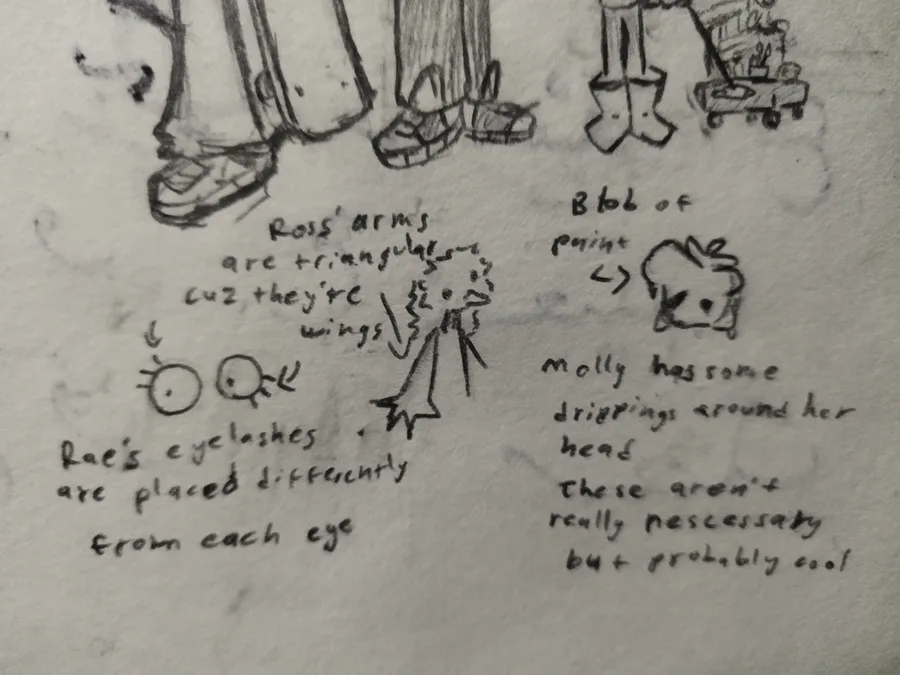 Ross' arms
are triangular
cuz they're
wings
Rae's eyelashes
are placed differently
from each eye
Blob of
paint
Molly has some
drippings around her
head
These aren't
really nescessary
but probably cool